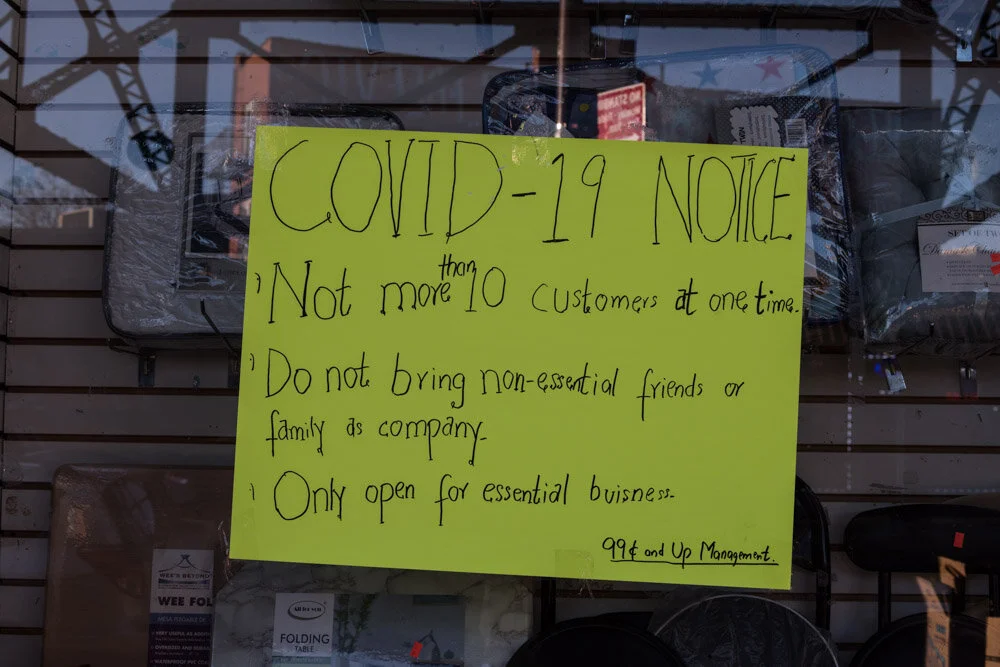 COVID-19 NOTICE
Not more than 10 customers at one time.
Do not bring non-essential friends or
family as company.
Only open for essential buisness.
99¢ and Up Management.
SET OF TWO
WEE'S BEYOND
WEE FOL
FOLDING
TABLE